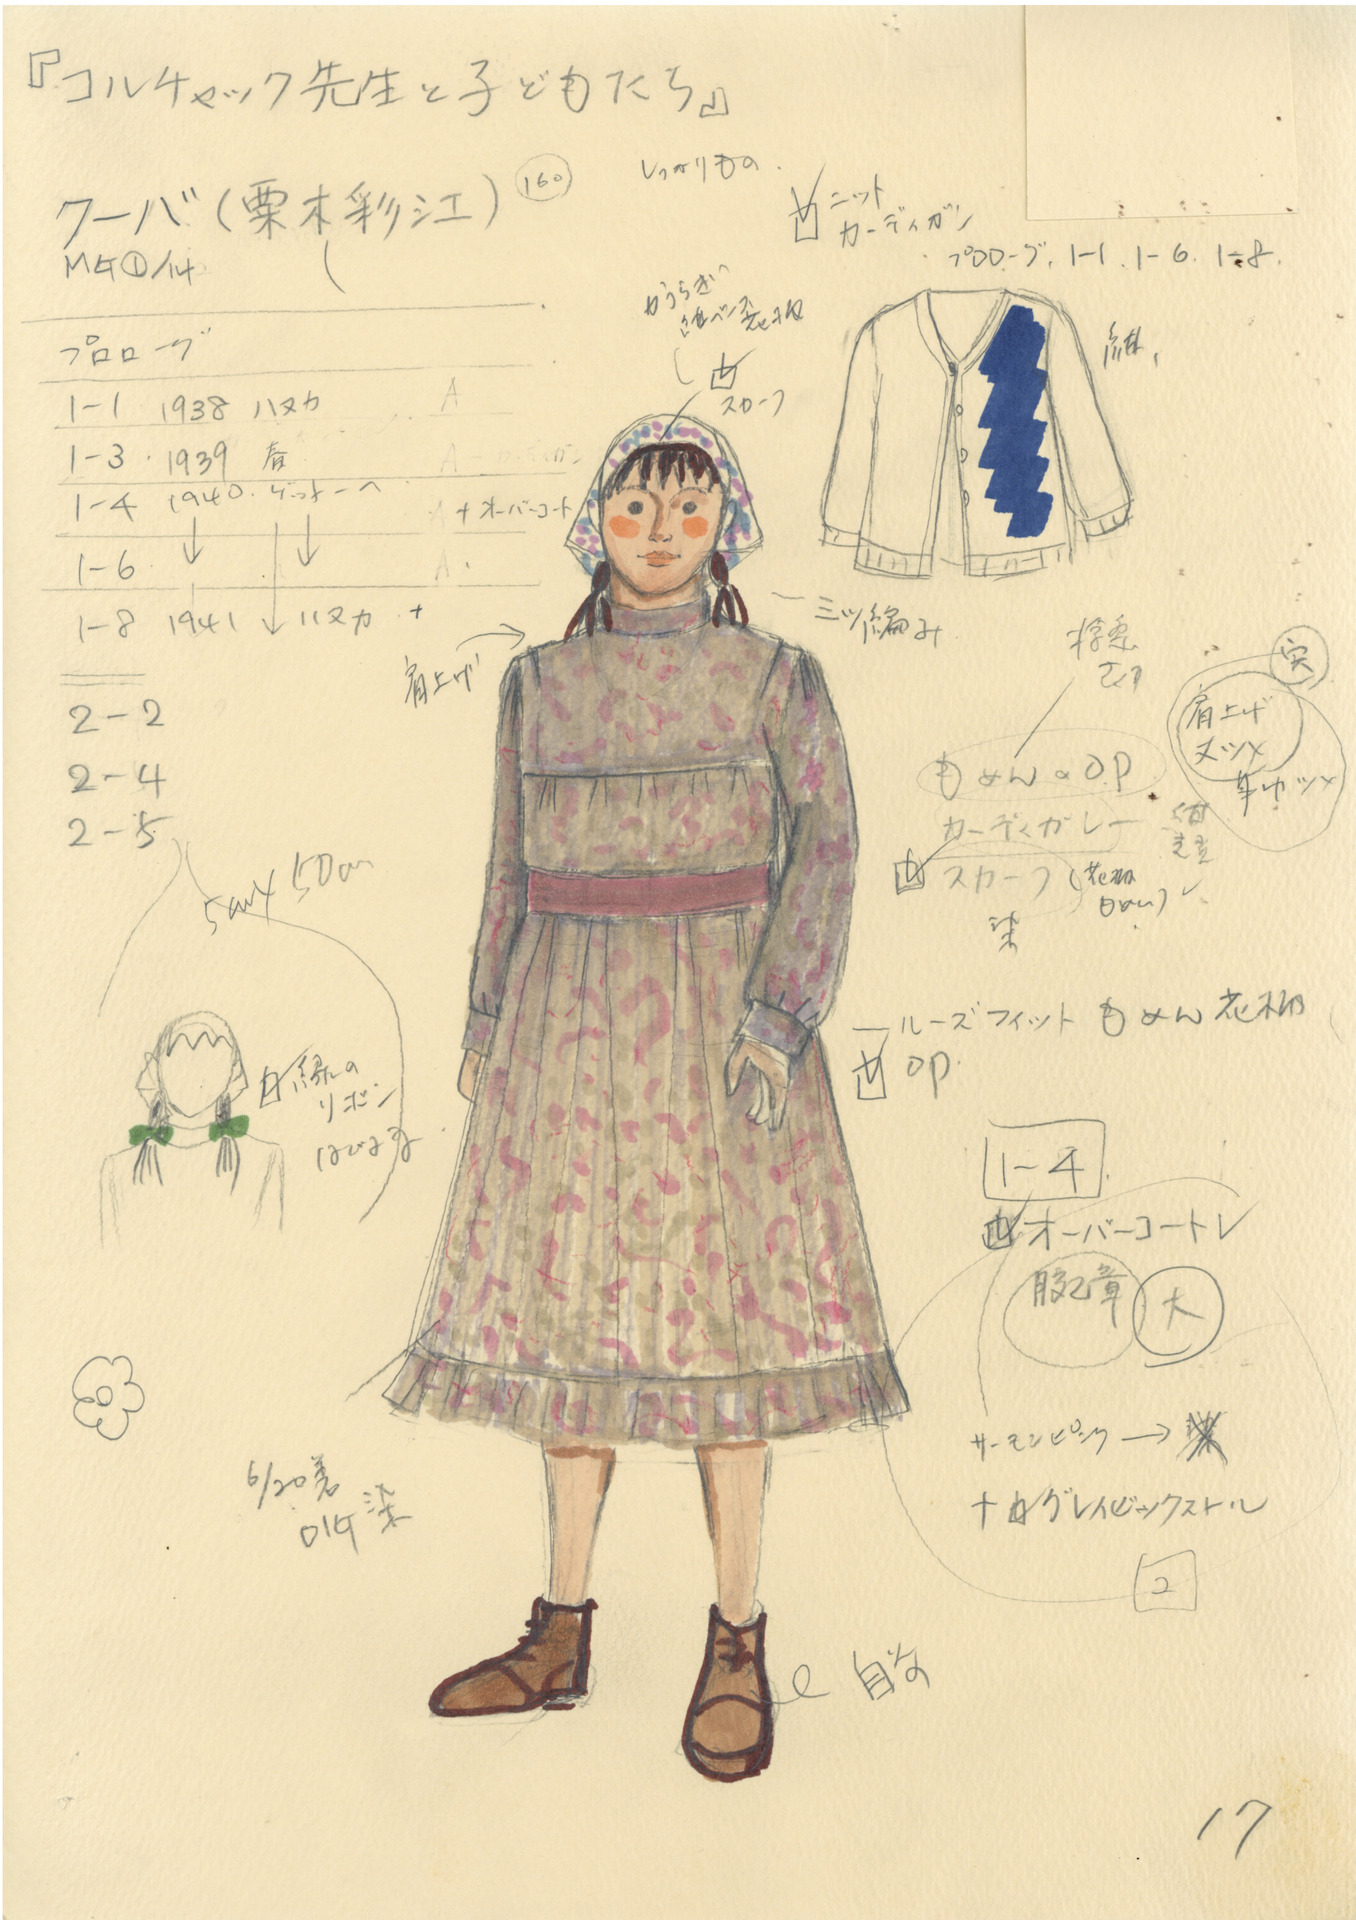 『コルチャック先生と子どもたち』
ワーバ(栗木彩江) 160
しっかりもの.
ニット
カーディガン
プロローグ. 1-1. 1-6. 1-8.
紺.
スカーフ
プロローグ
1-1 1938 ハヌカ A
1-3 1939 春 A
1-4 1940. ゲットーへ A +オーバーコート
1-6 A.
1-8 1941 ハヌカ +
2-2
2-4
2-5
肩上げ
三ツ編み
もめんのOP
カーディガン
スカーフ(花柄
染
実
肩上げ
丈ツメ
ルーズフィット もめん花柄
OP.
50cm
緑の
リボン
1-4
オーバーコート
腕章 大
サーモンピンク→
+白グレイビックストール
2
6/20着
染
自分
17